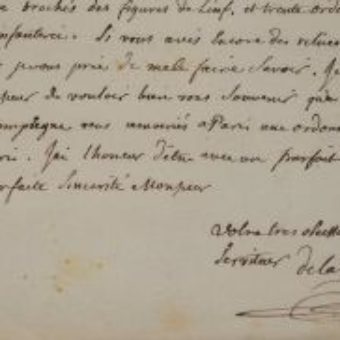 brochés des figures de Linf. et trente ordo
infanterie. Si vous avés Encore des
je vous prie de me le faire Savoir. Je
de vouloir bien vous Souvenir qu'a
ompiegne vous a Paris une ordon
J'ai l'honneur d'être avec un parfait
Sincerité Monsieur
Votre tres obeiss
Serviteur dela